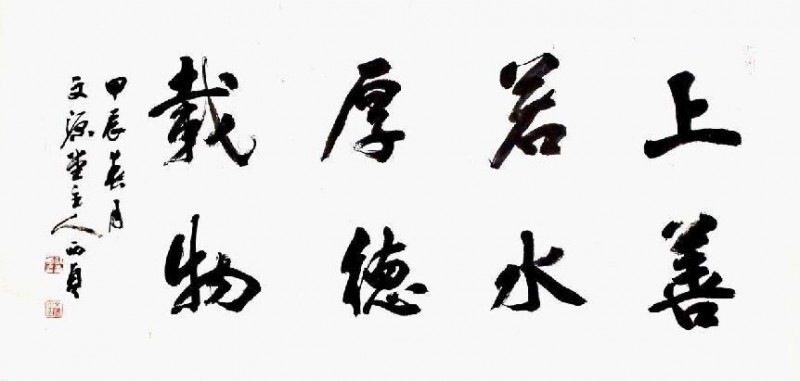 上善
若水
厚德
載物
甲辰春月
文源堂主人西貝